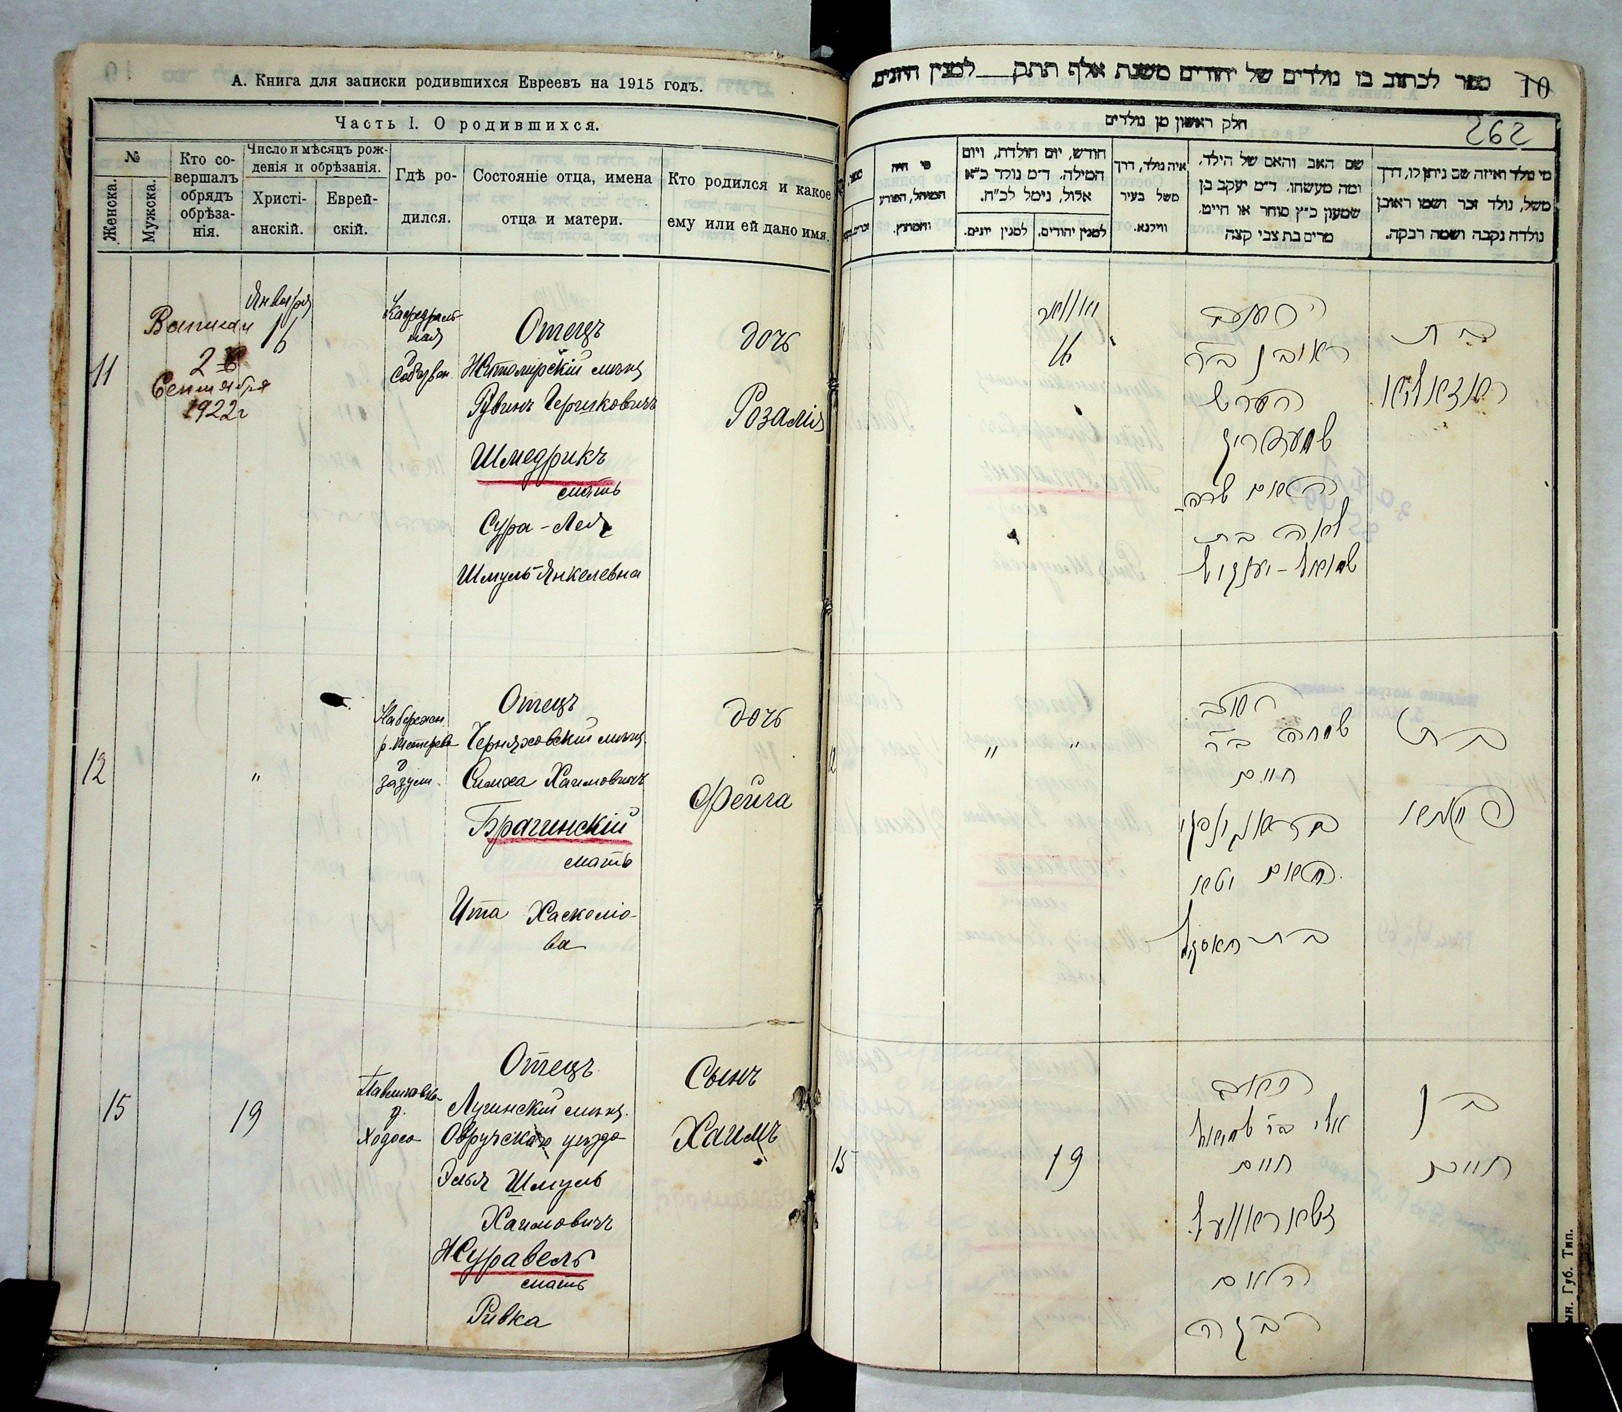 А. Книга для записки родившихся Евреевъ на 1915 годъ.
Часть I. О родившихся.
№
Женска.
Мужска.
Кто со-
вершалъ
обрядъ
обрѣза-
нія.
Число и мѣсяцъ рож-
денія и обрѣзанія.
Христі-
анскій.
Еврей-
скій.
Гдѣ ро-
дился.
Состояніе отца, имена
отца и матери.
Кто родился и какое
ему или ей дано имя.
11
Выписан
2
Сентября
1922 г
Января
16
Кафедраль-
ная
Отецъ
Житомирскій мѣщ
Рувинъ Гершковичъ
Шмедрикъ
мать
Сура-Лея
Шмуль-Янкелевна
дочь
Розалія
12
"
Набережн.
Отецъ
Черняховскій мѣщ.
Симха Хаимовичъ
Брагинскій
мать
Ита Хаскеліо-
ва
дочь
Фейга
15
19
Отецъ
Лугинскій мѣщ.
Овручскаго уѣзда
Эльл Шмуль
Хаимовичъ
Журавель
мать
Ривка
Сынъ
Хаимъ
ספר לכתוב בו נולדים של יהודים משנת אלף תתק למנין היונים
10
חלק ראשון מן נולדים
262
מי נולד ואיזה שם ניתן לו, דרך
משל, נולד זכר ושמו ראובן
נולדה נקבה ושמה רבקה.
שם האב והאם של הילד,
ומה מעשהו. ד״מ יעקב בן
שמעון כ״ץ סוחר או חייט.
מרים בת צבי קצה
איה נולד, דרך
משל בעיר
ווילנא.
חודש, יום הולדת, ויום
המילה. ד״מ נולד כ״א
אלול, נימל לכ״ח.
למנין יהודים.
למנין יונים.
מי היה
המוהל, הפורע
והמוצץ.
ינואר
16
ראובן ב״ר
הערש
שמעדריק
והאם שרה
לאה בת
שמואל-יענקיל
בת
ראזאליא
12
"
"
האב
שמחה ב״ר
חיים
בראגינסקי
האם יטא
בת חאסקיל
בת
פייגא
15
19
האב
אלי ב״ר שמואל
חיים
זשאראוועל
האם
רבקה
בן
חיים
ын. Губ. Тип.